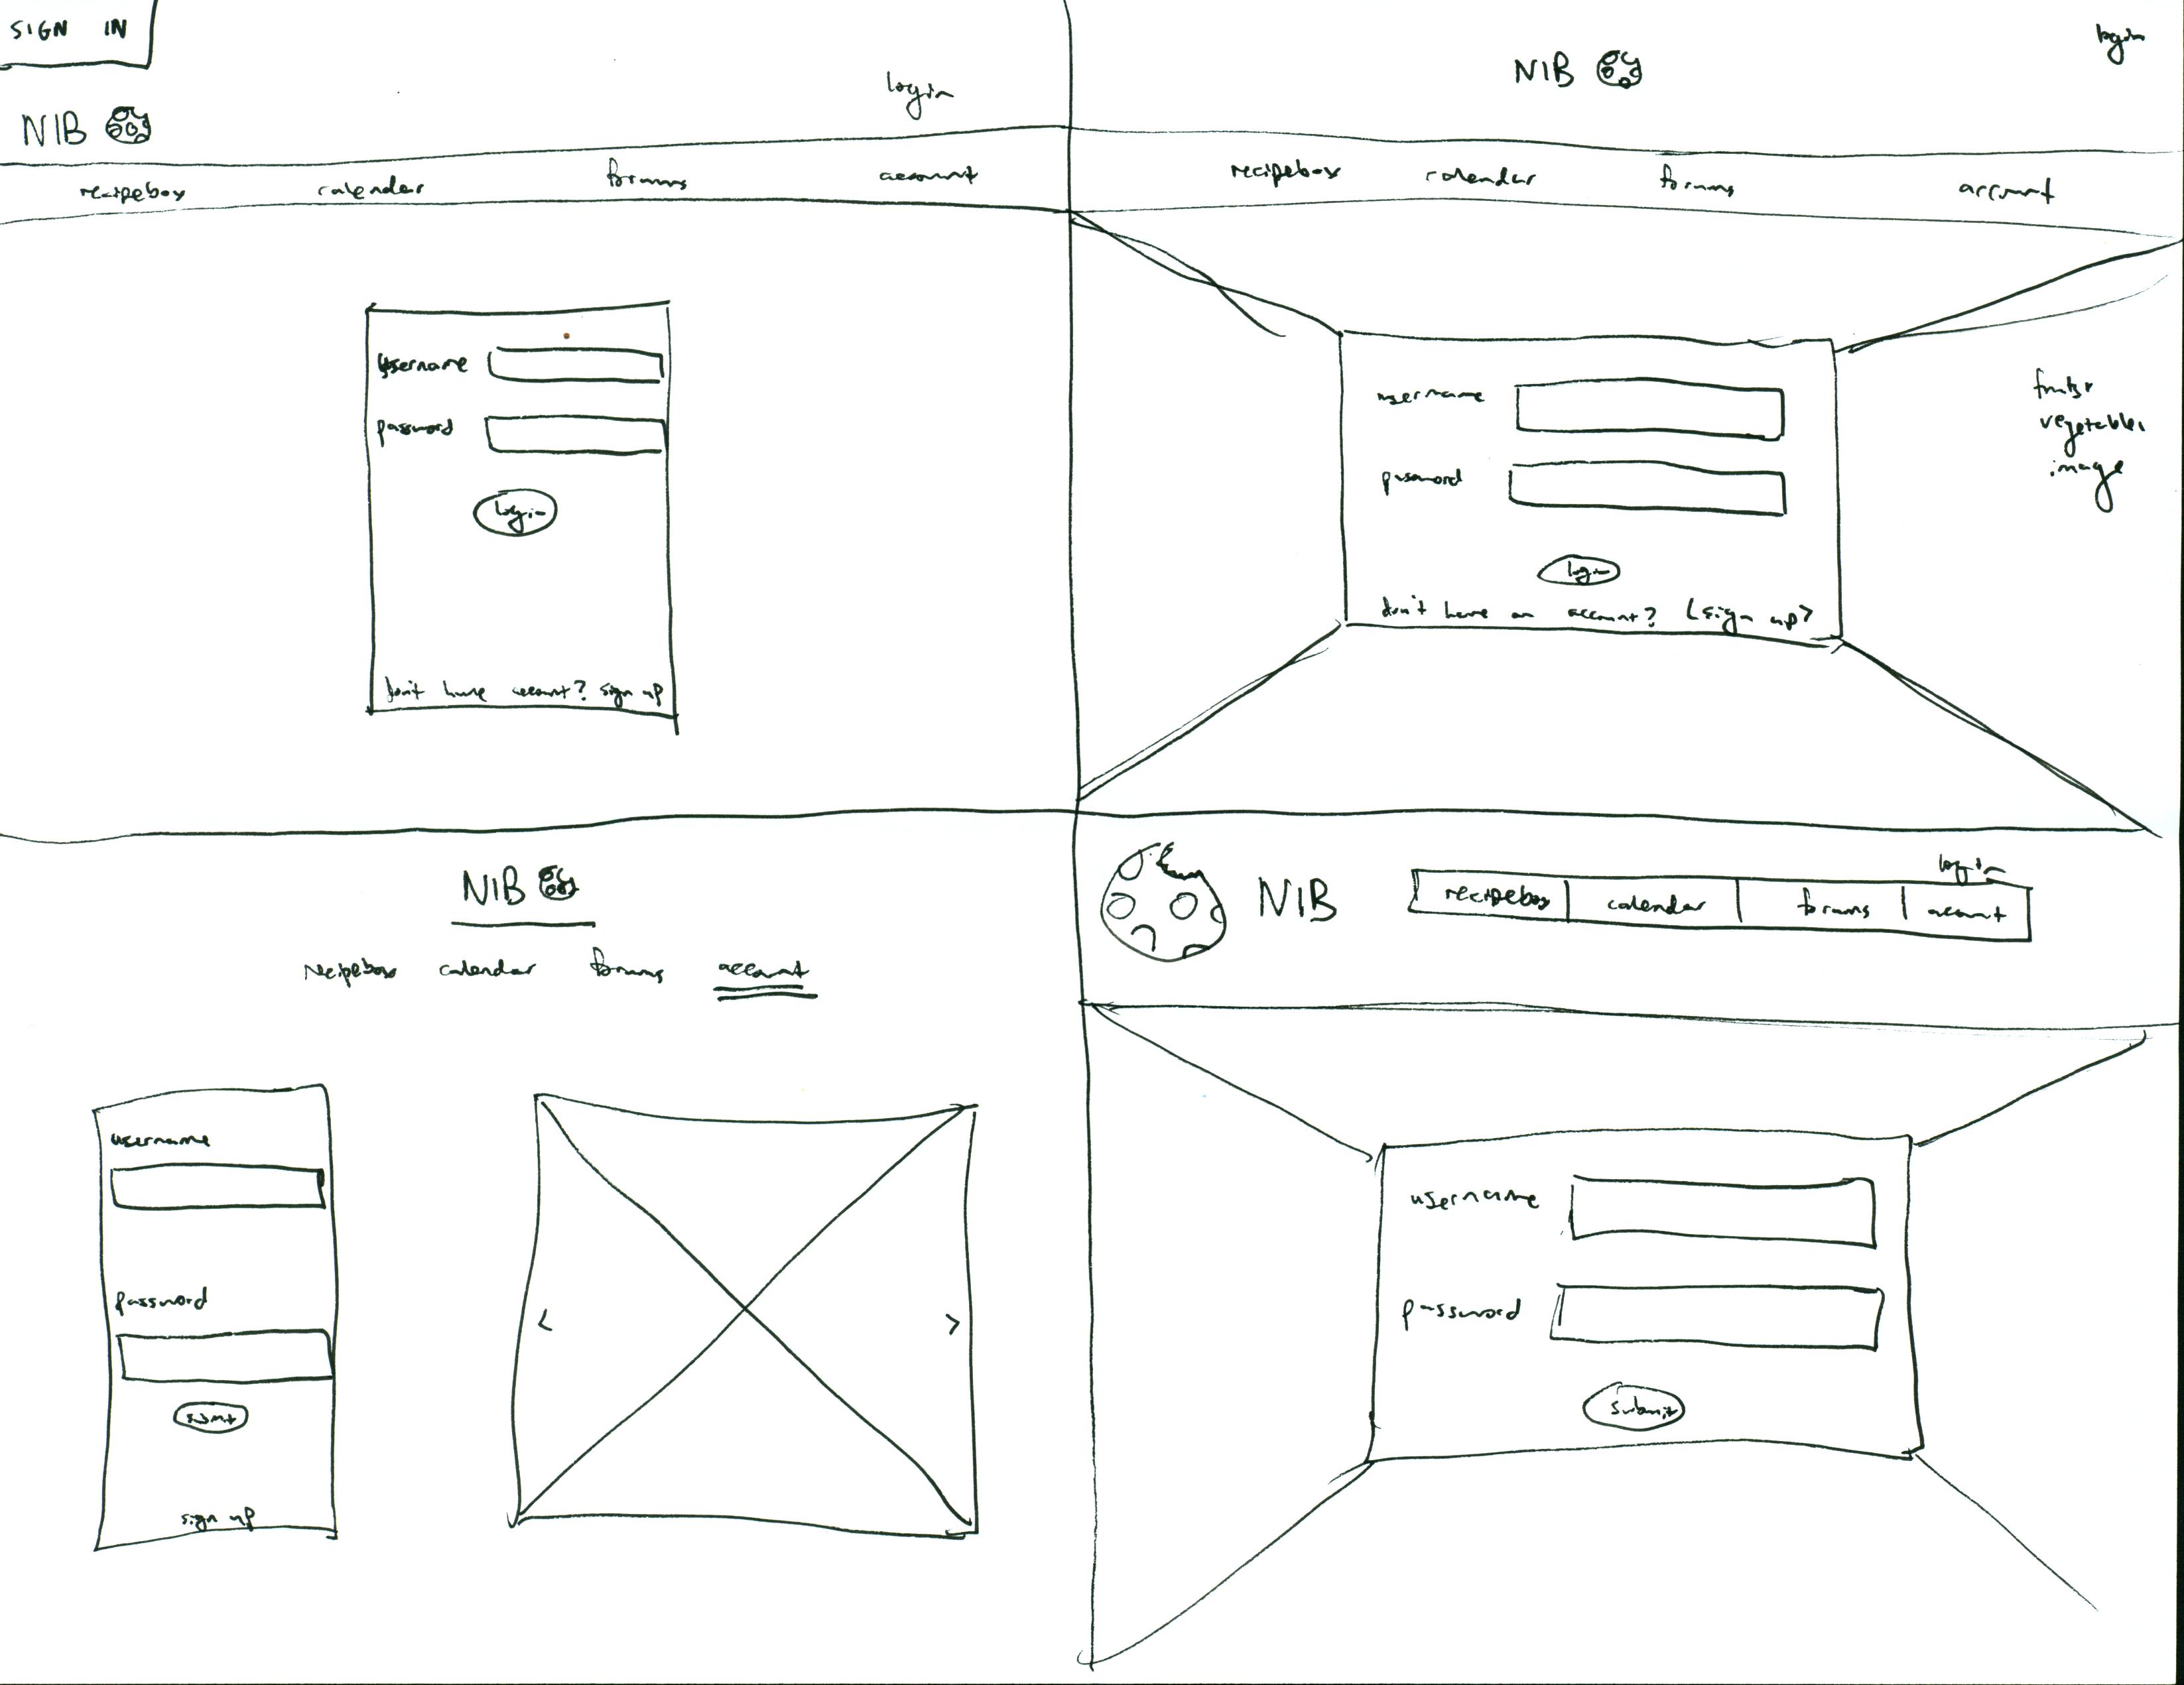 SIGN IN
login
NIB
recipebox calendar forums account
username
password
login
don't have account? sign up
login
NIB
recipebox calendar forums account
fruits+
vegetables
image
username
password
login
don't have an account? (sign up)
NIB
recipebox calendar forums account
username
password
submit
sign up
< >
login
NIB
recipebox calendar forums account
username
password
submit